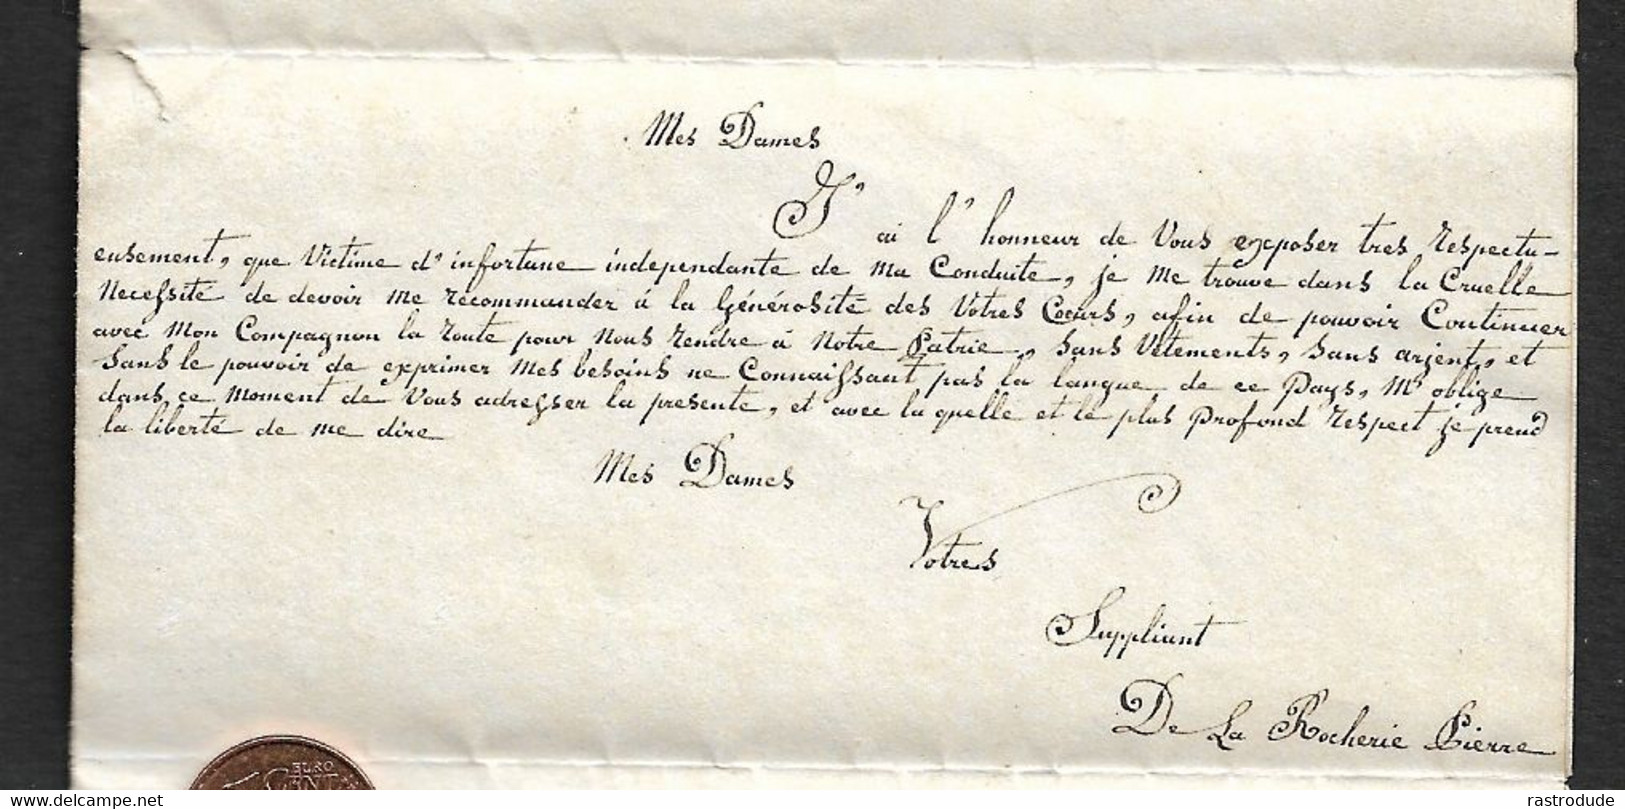 Mes Dames
J'ai l'honneur de Vous exposer tres respectu-
eusement, que Victime d'infortune independante de ma Conduite, je me trouve dans la Cruelle
Necessité de devoir me recommander á la Générosité des Votres Cœurs, afin de pouvoir Continuer
avec Mon Compagnon la route pour Nous rendre à Notre Patrie, Sans Vétements, Sans arjent, et
Sans le pouvoir de exprimer Mes besoins ne Connaissant pas la langue de ce Pays, M'oblige
dans ce Moment de Vous adresser la presente, et avec la quelle et le plus Profond respect je prend
la liberté de me dire
Mes Dames
Votres
Suppliant
De La Rocherie Pierre
EURO
CENT
delcampe.net
rastrodude